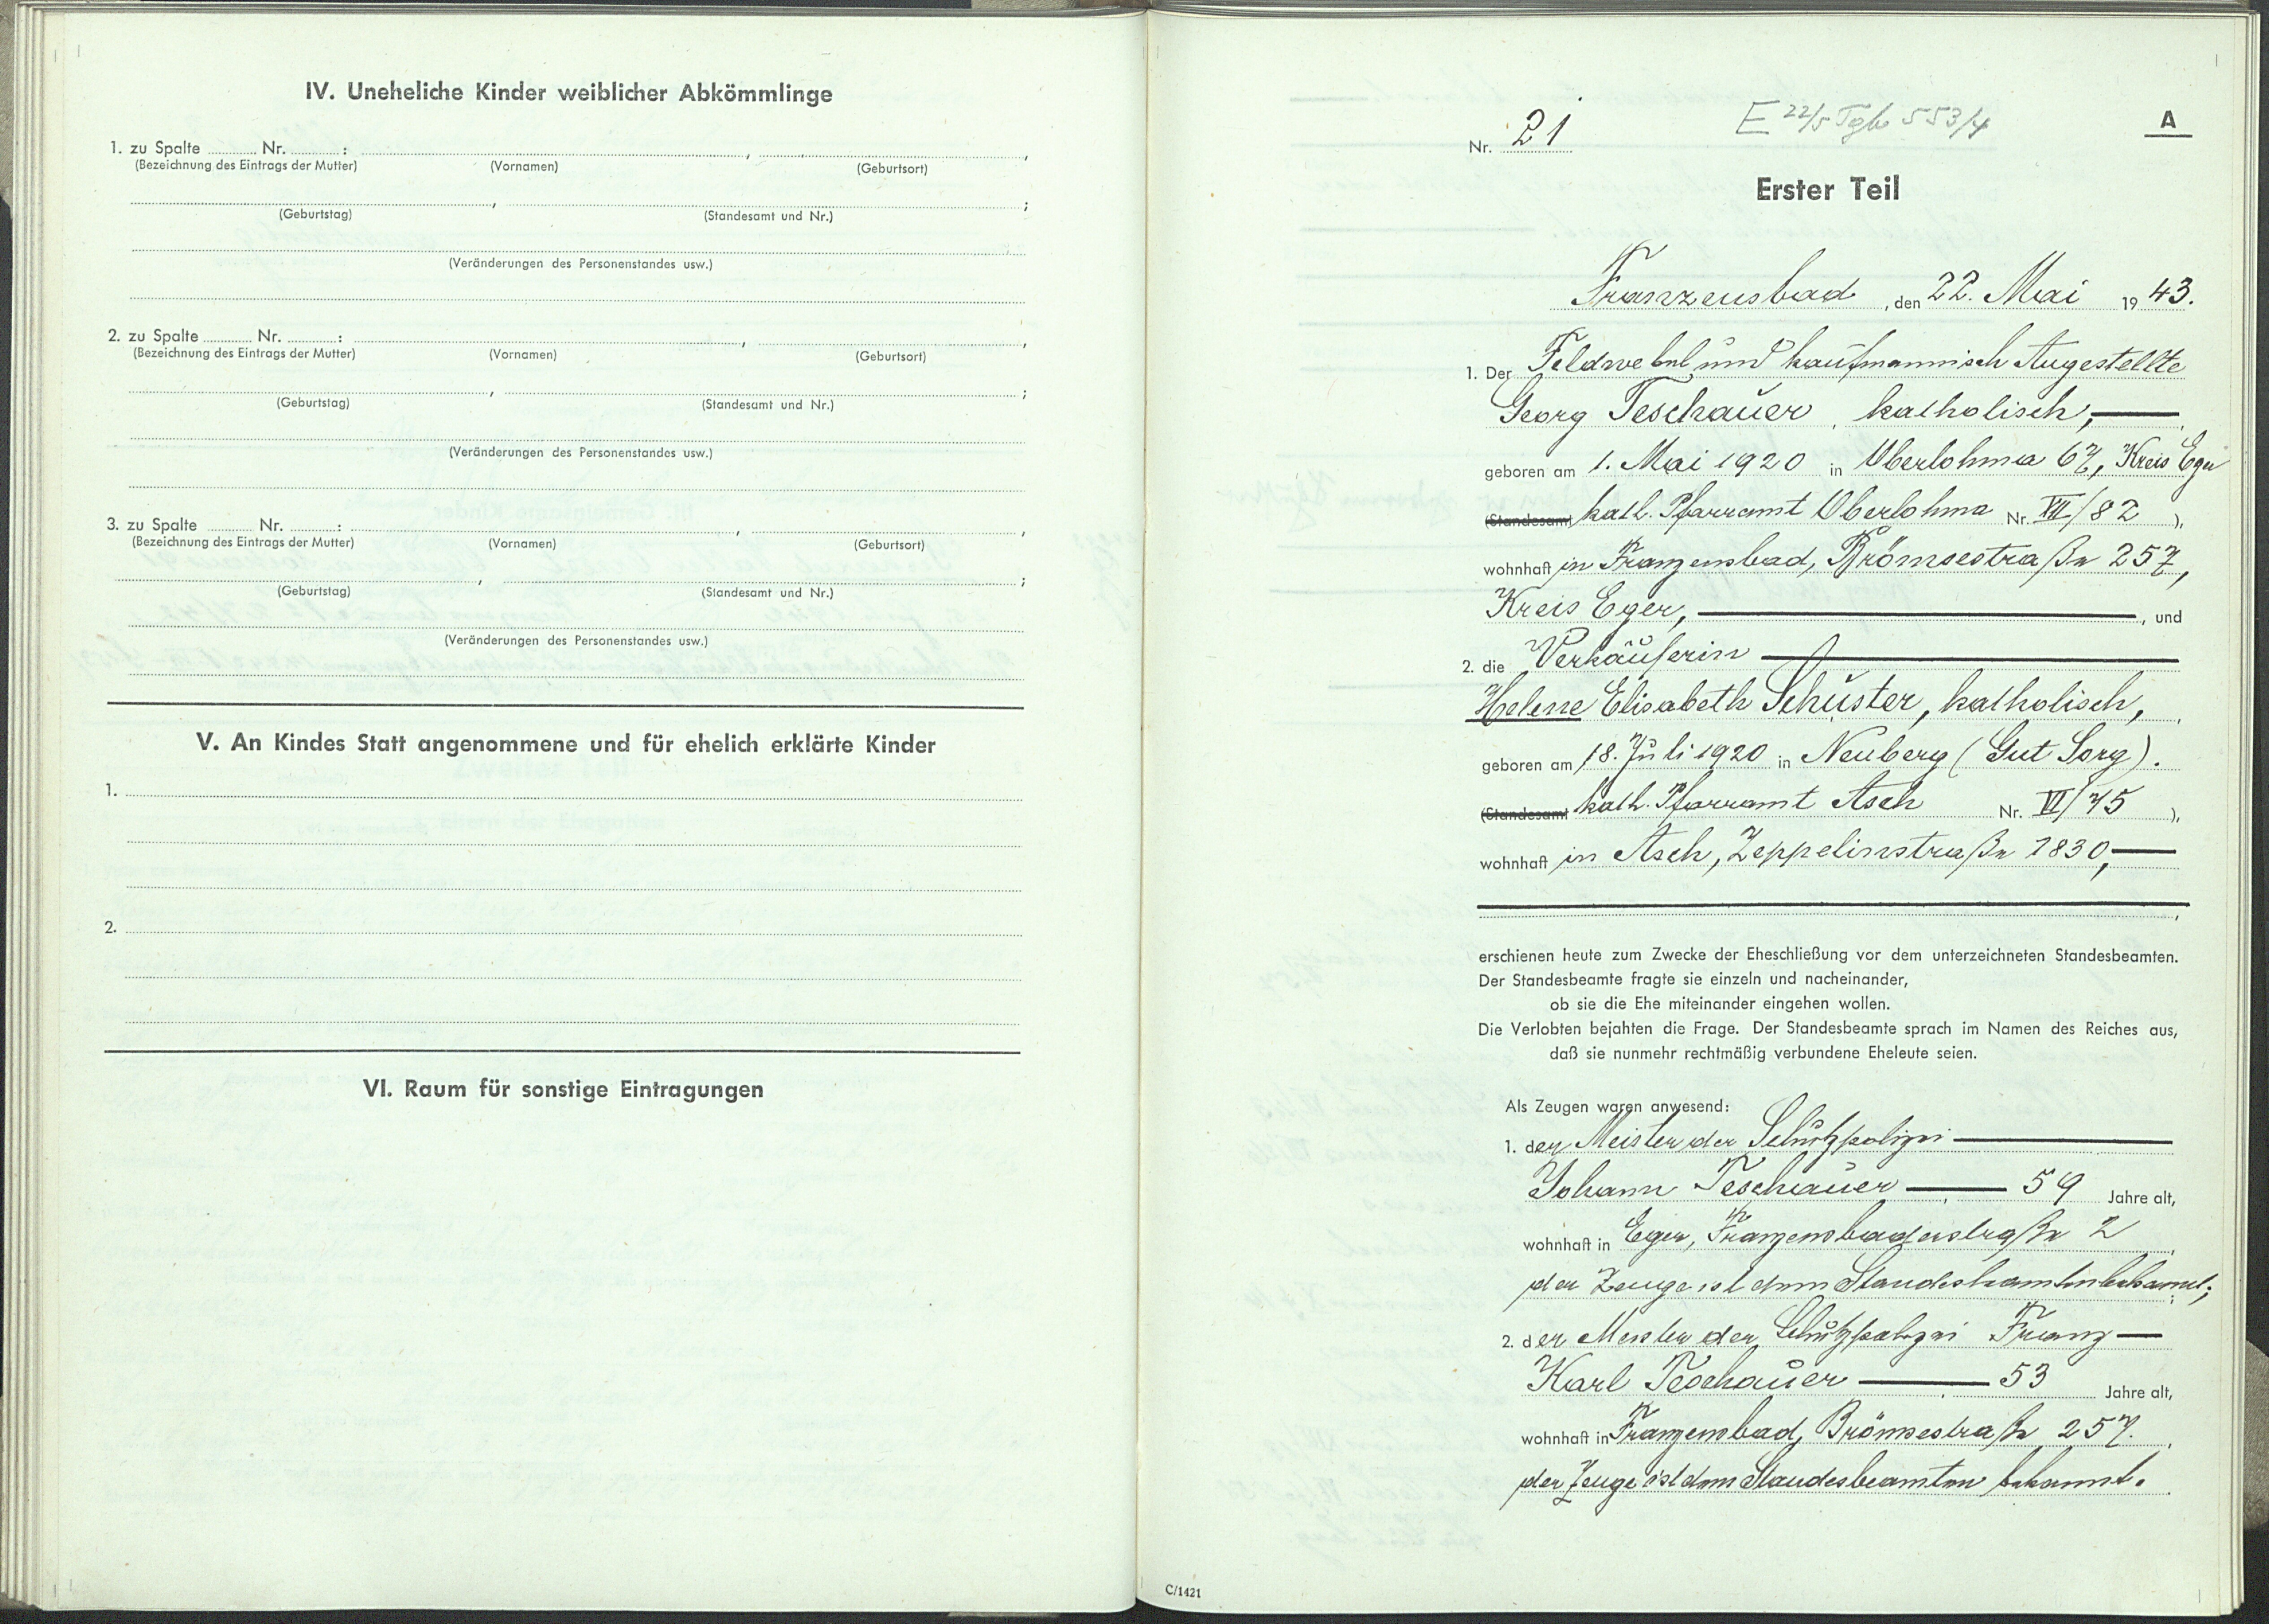 IV. Uneheliche Kinder weiblicher Abkömmlinge
1. zu Spalte Nr. : ,
(Bezeichnung des Eintrags der Mutter) (Vornamen) (Geburtsort)
(Geburtstag) (Standesamt und Nr.)
(Veränderungen des Personenstandes usw.)
2. zu Spalte Nr. : ,
(Bezeichnung des Eintrags der Mutter) (Vornamen) (Geburtsort)
(Geburtstag) (Standesamt und Nr.)
(Veränderungen des Personenstandes usw.)
3. zu Spalte Nr. : ,
(Bezeichnung des Eintrags der Mutter) (Vornamen) (Geburtsort)
(Geburtstag) (Standesamt und Nr.)
(Veränderungen des Personenstandes usw.)
V. An Kindes Statt angenommene und für ehelich erklärte Kinder
1.
2.
VI. Raum für sonstige Eintragungen
E 22/5 Tgb 553/4
A
Nr. 21
Erster Teil
Franzensbad, den 22. Mai 1943.
1. Der Feldwebel und kaufmannisch Angestellte
Georg Teschauer, katholisch,
geboren am 1. Mai 1920 in Oberlohma 67, Kreis Eger
(Standesamt kath. Pfarramt Oberlohma Nr. VII/82 ),
wohnhaft in Franzensbad, Brömsestraße 257,
Kreis Eger, , und
2. die Verkäuferin
Helene Elisabeth Schuster, katholisch,
geboren am 18. Juli 1920 in Neuberg (Gut Sorg).
(Standesamt kath. Pfarramt Asch Nr. VI/75 ),
wohnhaft in Asch, Zeppelinstraße 1830,
erschienen heute zum Zwecke der Eheschließung vor dem unterzeichneten Standesbeamten.
Der Standesbeamte fragte sie einzeln und nacheinander,
ob sie die Ehe miteinander eingehen wollen.
Die Verlobten bejahten die Frage. Der Standesbeamte sprach im Namen des Reiches aus,
daß sie nunmehr rechtmäßig verbundene Eheleute seien.
Als Zeugen waren anwesend:
1. der Meister der Schutzpolizei
Johann Teschauer 59 Jahre alt,
wohnhaft in Eger, Franzensbaderstraße 2
der Zeuge ist dem Standesbeamten bekannt;
2. der Meister der Schutzpolizei Franz
Karl Teschauer 53 Jahre alt,
wohnhaft in Franzensbad, Brömsestraße 257.
der Zeuge ist dem Standesbeamten bekannt.
C/1421